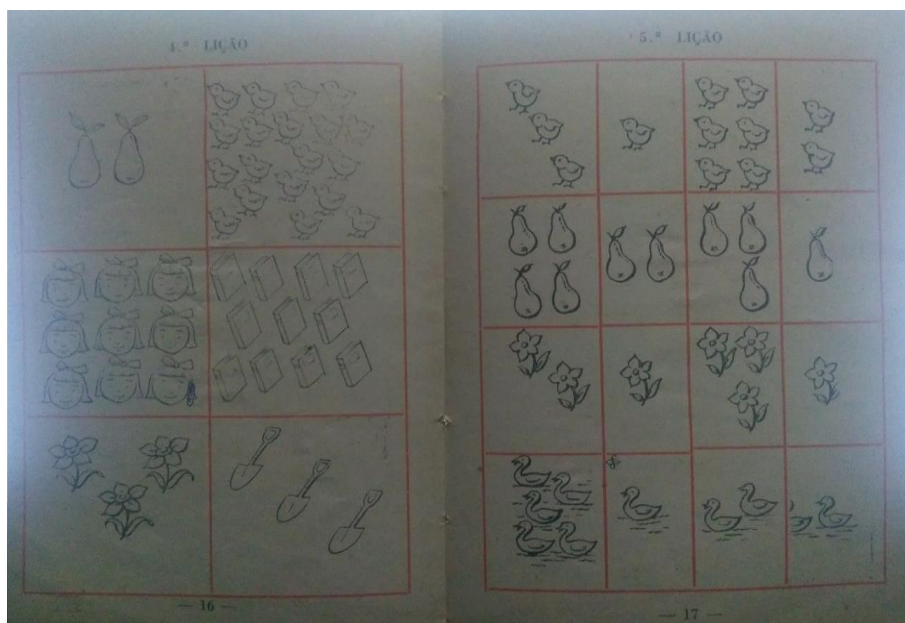 4.ª LIÇÃO
— 16 —
5.ª LIÇÃO
— 17 —